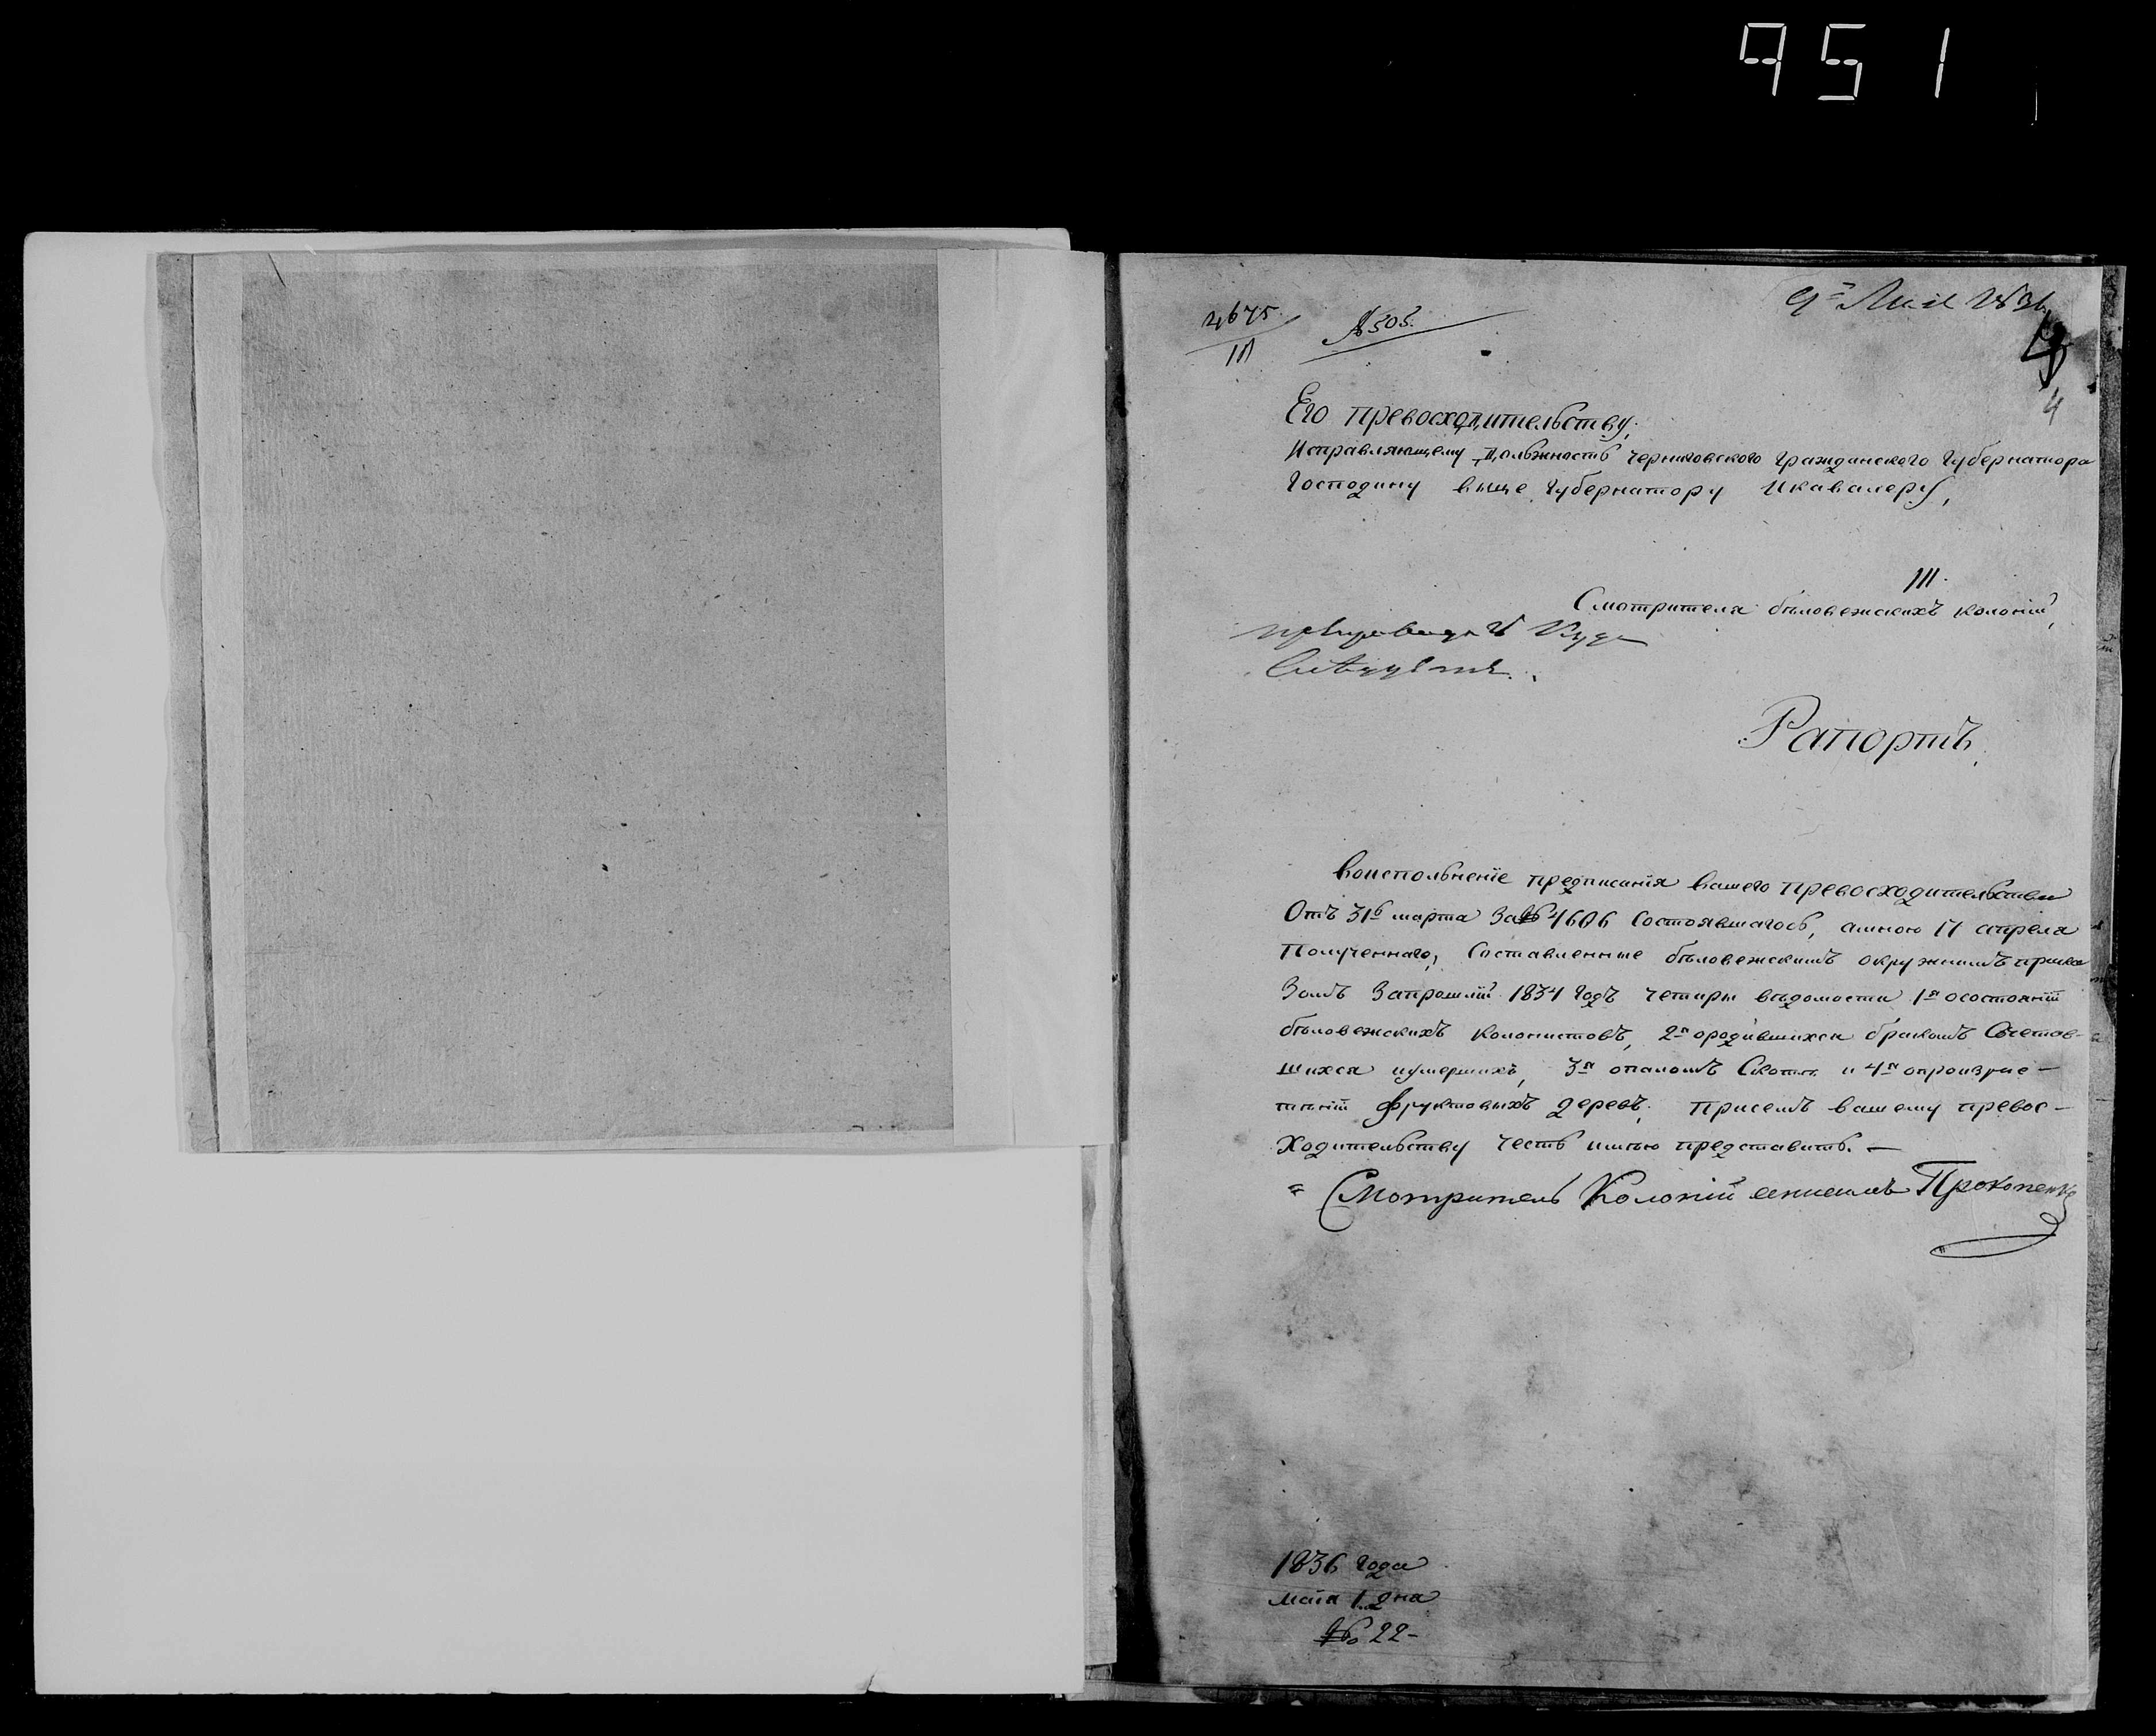 951
9го Мая 1836
4675
III
№ 505.
4
Его превосходительству,
Исправляющему должность черниговского гражданского губернатора
Господину вице губернатору икавалеру,
III.
Смотрителя бѣловежскихъ колонiй,
Рапортъ,
Воисполненiе предписанiя вашего превосходительства
Отъ 31го марта За№ 4606 Состоявшагось, амною 17 апреля
Полученнаго, Составленные бѣловежскимъ окружнимъ прика
Зомъ Запрошлiй 1834 годъ четыри ведомости 1я осостоянiй
бѣловежскихъ колонистовъ, 2я ородившихся бракомъ Сочетав-
шихся иумершихъ, 3я опаломъ Скотѣ и 4я опроизрас-
тѣнiй фруктовыхъ деревъ. присемъ вашему превос-
Ходительству честь имѣю представить. —
Смотритель Колонiй Прокопенко
1836 года
маiя 1 дна
№ 22-